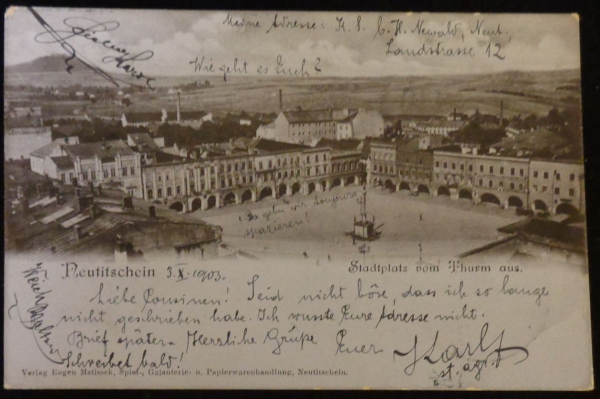 Meine Adresse: K. S. b. H. Newald, Neut.
Landstrasse 12
Wie geht es Euch?
Da gehn wir
spazieren!
Neutitschein 3. X. 1903.
Stadtplatz vom Thurm aus.
Liebe Cousinen! Seid nicht böse, dass ich so lange
nicht geschrieben habe. Ich wusste Eure Adresse nicht.
Brief später. Herrliche Grüße Euer Karl
Schreibet bald! st. agr.
Verlag Eugen Malissek, Spiel-, Galanterie- u. Papierwarenhandlung, Neutitschein.